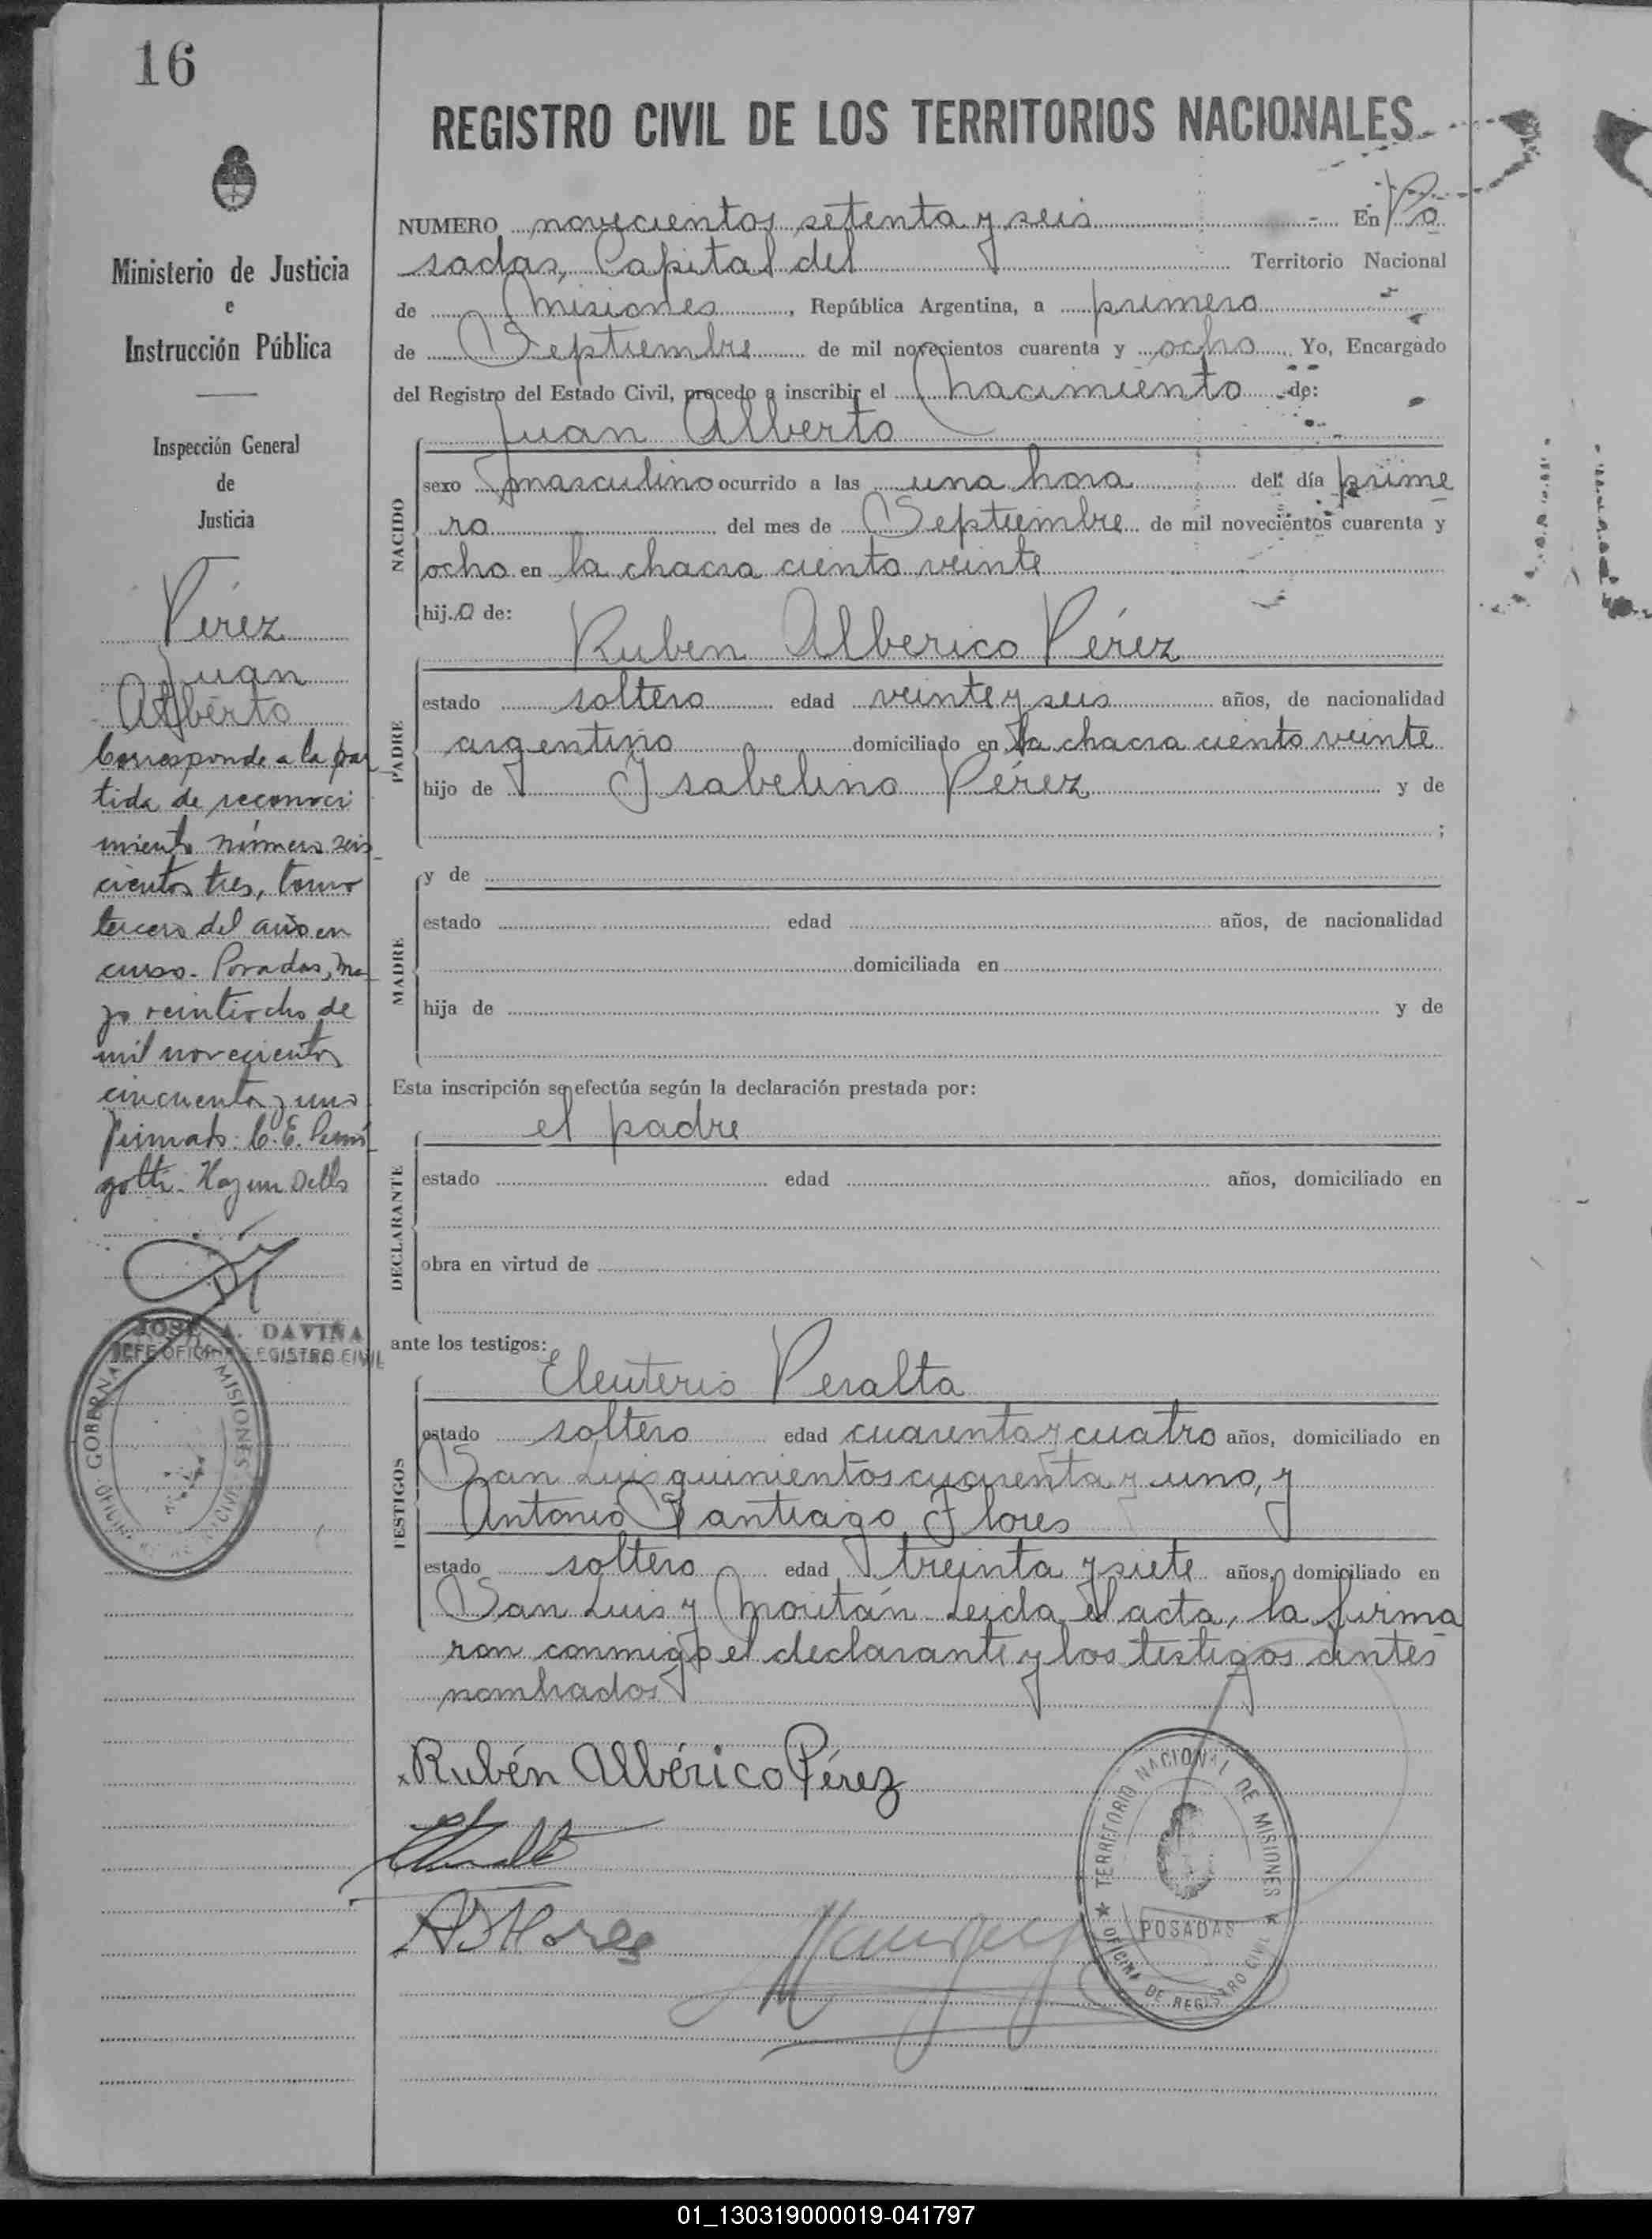 16
REGISTRO CIVIL DE LOS TERRITORIOS NACIONALES
Ministerio de Justicia
e
Instrucción Pública
Inspección General
de
Justicia
Pérez
Juan
Alberto
Corresponde a la par
tida de reconoci
miento número seis
cientos tres, tomo
tercero del año en
curso. Posadas, Ma
yo veintiocho de
mil novecientos
cincuenta y uno
firmado: C. E.
Hay un sello
JOSE A. DAVIÑA
JEFE OFICINA REGISTRO CIVIL
GOBERNA MISIONES
NUMERO novecientos setenta y seis En Po
sadas, Capital del Territorio Nacional
de Misiones, República Argentina, a primero
de Septiembre de mil novecientos cuarenta y ocho Yo, Encargado
del Registro del Estado Civil, procedo a inscribir el nacimiento de:
Juan Alberto
NACIDO
sexo masculino ocurrido a las una hora del día prime
ro del mes de Septiembre de mil novecientos cuarenta y
ocho en la chacra ciento veinte
hijo de:
Ruben Alberico Pérez
PADRE
estado soltero edad veinte y seis años, de nacionalidad
argentino domiciliado en la chacra ciento veinte
hijo de Isabelino Pérez y de
;
MADRE
y de
estado edad años, de nacionalidad
domiciliada en
hija de y de
Esta inscripción se efectúa según la declaración prestada por:
el padre
DECLARANTE
estado edad años, domiciliado en
obra en virtud de
ante los testigos:
Eleuterio Peralta
TESTIGOS
estado soltero edad cuarenta y cuatro años, domiciliado en
San Luis quinientos cuarenta y uno, y
Antonio Santiago Flores
estado soltero edad treinta y siete años, domiciliado en
San Luis y Moritán. Leida el acta, la firma
ron conmigo el declarante y los testigos antes
nombrados
x Rubén Albérico Pérez
A S Flores
TERRITORIO NACIONAL DE MISIONES
POSADAS
OFICINA DE REGISTRO CIVIL
01_130319000019-041797